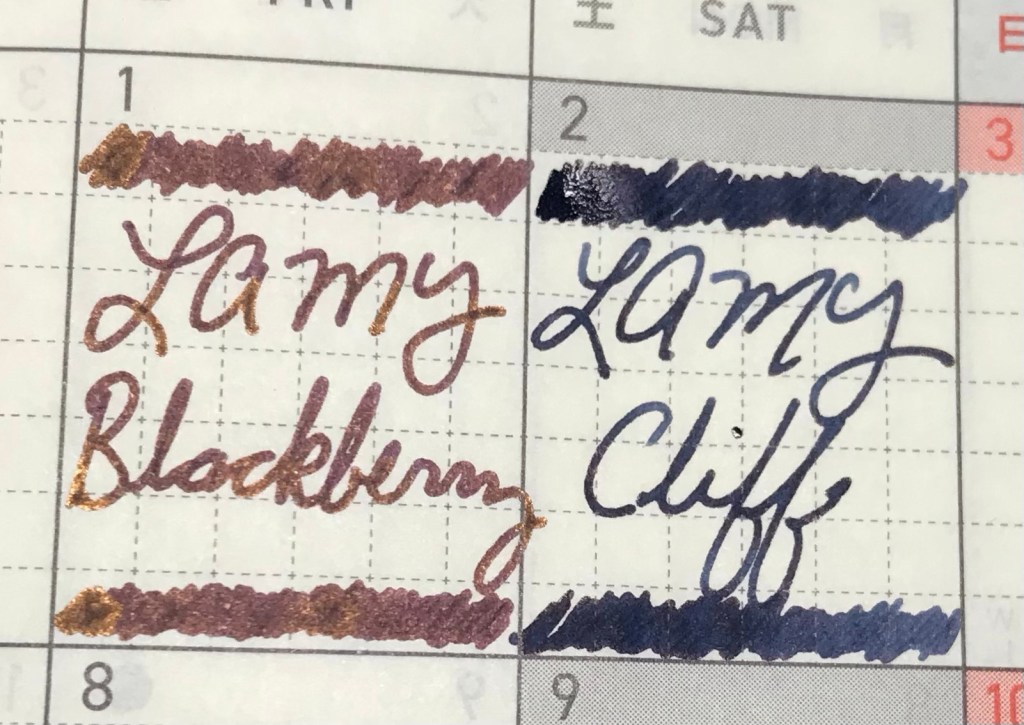 FRI 土 SAT 日
1 2 3
Lamy Lamy
Blackberry Cliff
8 9 10